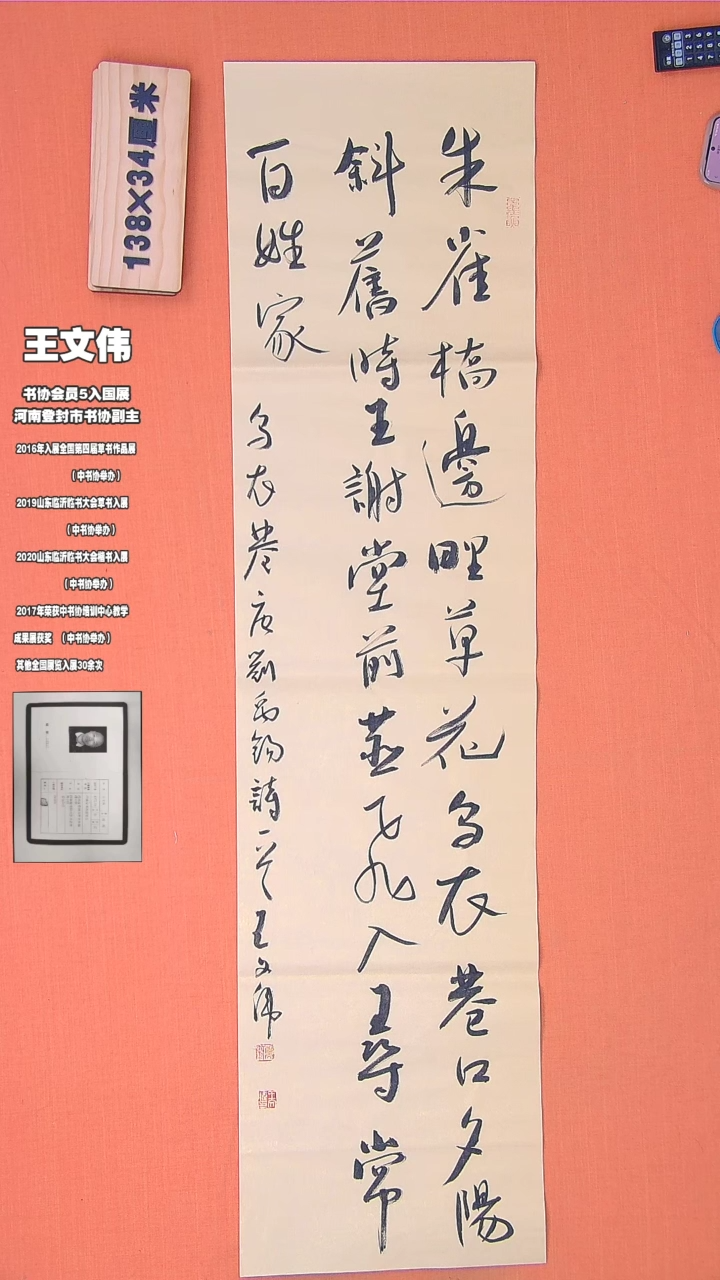 138×34厘米
朱雀橋邊野草花烏衣巷口夕陽
斜舊時王謝堂前燕子飛入尋常
百姓家 烏衣巷 唐劉禹錫詩一首 王文偉
王文伟
书协会员5入国展
河南登封市书协副主
2016年入展全国第四届草书作品展
（中书协举办）
2019山东临沂临书大会草书入展
（中书协举办）
2020山东临沂临书大会楷书入展
（中书协举办）
2017年荣获中书协培训中心教学
成果展获奖 （中书协举办）
其他全国展览入展30余次